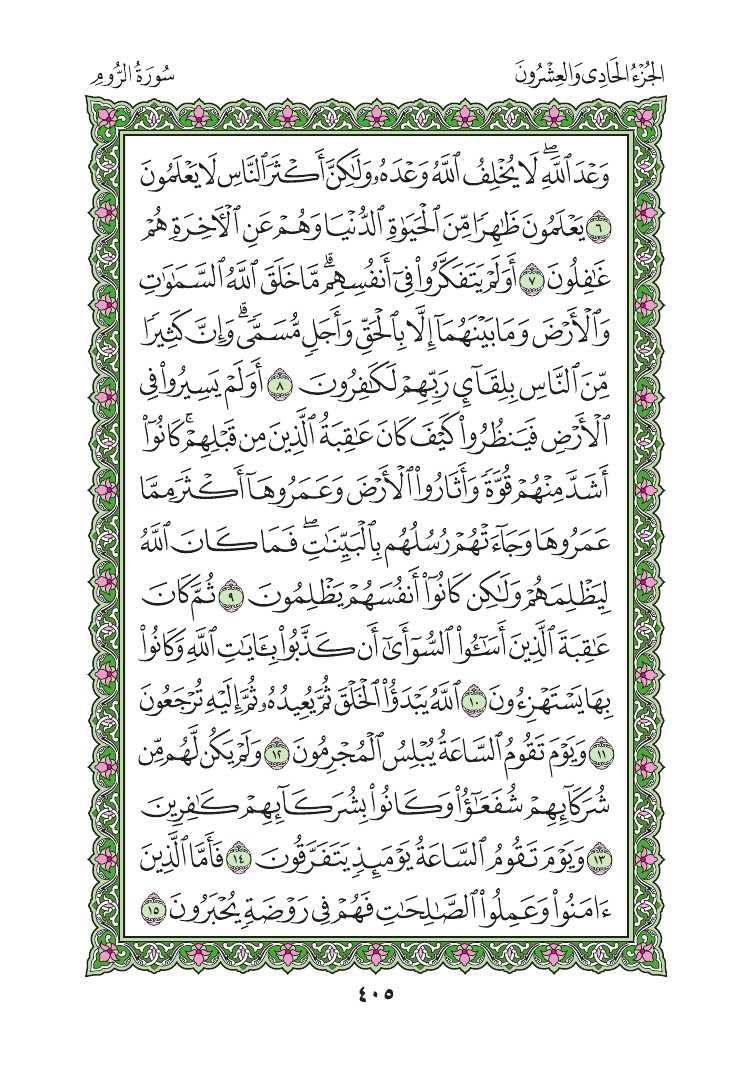 الجُزْءُ الحَادِي وَالعِشْرُونَ
سُورَةُ الرُّومِ
وَعْدَ ٱللَّهِۖ لَا يُخْلِفُ ٱللَّهُ وَعْدَهُۥ وَلَٰكِنَّ أَكْثَرَ ٱلنَّاسِ لَا يَعْلَمُونَ
٦ يَعْلَمُونَ ظَٰهِرٗا مِّنَ ٱلْحَيَوٰةِ ٱلدُّنْيَا وَهُمْ عَنِ ٱلْأٓخِرَةِ هُمْ
غَٰفِلُونَ ٧ أَوَلَمْ يَتَفَكَّرُوا۟ فِىٓ أَنفُسِهِمۗ مَّا خَلَقَ ٱللَّهُ ٱلسَّمَٰوَٰتِ
وَٱلْأَرْضَ وَمَا بَيْنَهُمَآ إِلَّا بِٱلْحَقِّ وَأَجَلٖ مُّسَمّٗىۗ وَإِنَّ كَثِيرٗا
مِّنَ ٱلنَّاسِ بِلِقَآئِ رَبِّهِمْ لَكَٰفِرُونَ ٨ أَوَلَمْ يَسِيرُوا۟ فِى
ٱلْأَرْضِ فَيَنظُرُوا۟ كَيْفَ كَانَ عَٰقِبَةُ ٱلَّذِينَ مِن قَبْلِهِمْۚ كَانُوٓا۟
أَشَدَّ مِنْهُمْ قُوَّةٗ وَأَثَارُوا۟ ٱلْأَرْضَ وَعَمَرُوهَآ أَكْثَرَ مِمَّا
عَمَرُوهَا وَجَآءَتْهُمْ رُسُلُهُم بِٱلْبَيِّنَٰتِۖ فَمَا كَانَ ٱللَّهُ
لِيَظْلِمَهُمْ وَلَٰكِن كَانُوٓا۟ أَنفُسَهُمْ يَظْلِمُونَ ٩ ثُمَّ كَانَ
عَٰقِبَةَ ٱلَّذِينَ أَسَٰٓـُٔوا۟ ٱلسُّوٓأَىٰٓ أَن كَذَّبُوا۟ بِـَٔايَٰتِ ٱللَّهِ وَكَانُوا۟
بِهَا يَسْتَهْزِءُونَ ١٠ ٱللَّهُ يَبْدَؤُا۟ ٱلْخَلْقَ ثُمَّ يُعِيدُهُۥ ثُمَّ إِلَيْهِ تُرْجَعُونَ
١١ وَيَوْمَ تَقُومُ ٱلسَّاعَةُ يُبْلِسُ ٱلْمُجْرِمُونَ ١٢ وَلَمْ يَكُن لَّهُم مِّن
شُرَكَآئِهِمْ شُفَعَٰٓؤُا۟ وَكَانُوا۟ بِشُرَكَآئِهِمْ كَٰفِرِينَ
١٣ وَيَوْمَ تَقُومُ ٱلسَّاعَةُ يَوْمَئِذٖ يَتَفَرَّقُونَ ١٤ فَأَمَّا ٱلَّذِينَ
ءَامَنُوا۟ وَعَمِلُوا۟ ٱلصَّٰلِحَٰتِ فَهُمْ فِى رَوْضَةٖ يُحْبَرُونَ ١٥
٤٠٥